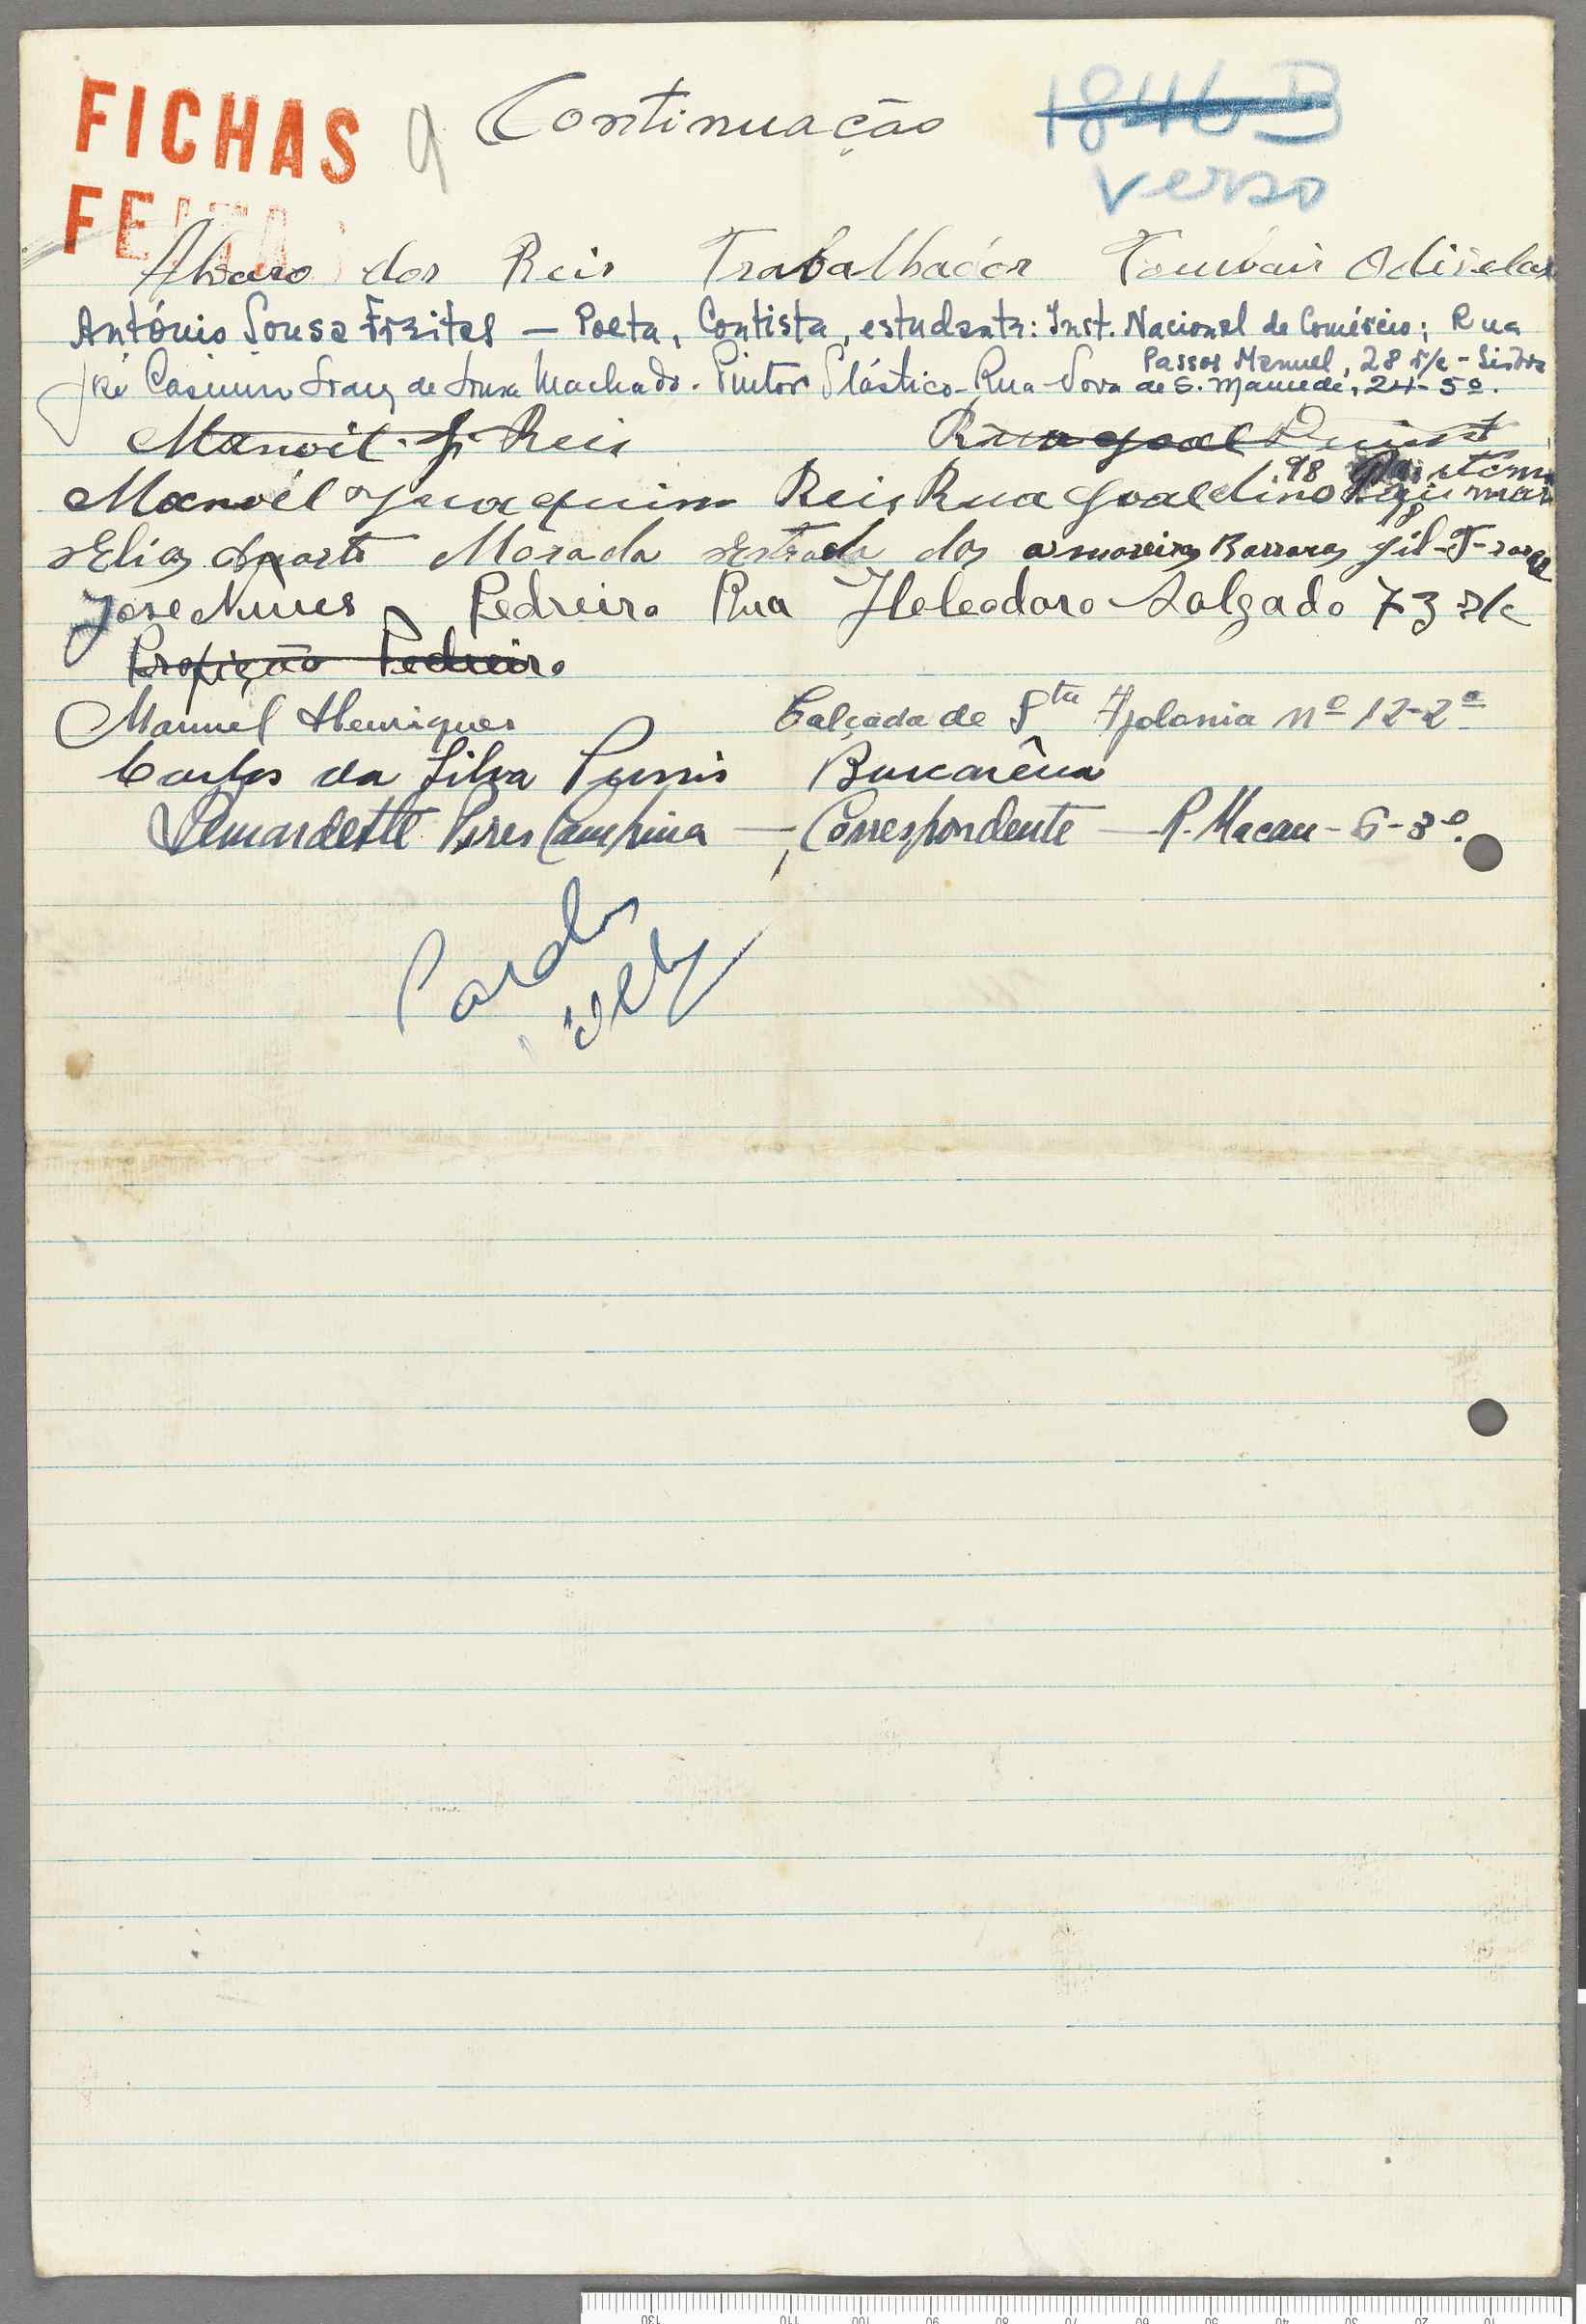 FICHAS
FEITAS
9 Continuação
1846 B
verso
Alvaro dos Reis Trabalhador Odivelas
António Sousa Freitas — Poeta, Contista, estudante: Inst. Nacional de Comércio; Rua
Passos Manuel, 28 r/c - Lisboa
José Casimiro de Sousa Machado. Pintor Plástico - Rua Nova de S. Mamede, 24-5º.
Manoil J. Reis Rua goal
Manoél Juaquim Reis Rua Goaldino Pais 98
Elias Duarte Morada Estrada dos
Jose Nunes Pedreiro Rua Heleodoro Salgado 73 r/c
Profição Pedreiro
Manuel Henriques Calçada de Sta Apolonia nº 12-2º
Carlos da Silva Barcarêna
Bernardette Pires — Correspondente — R. Macau - 6-3º.